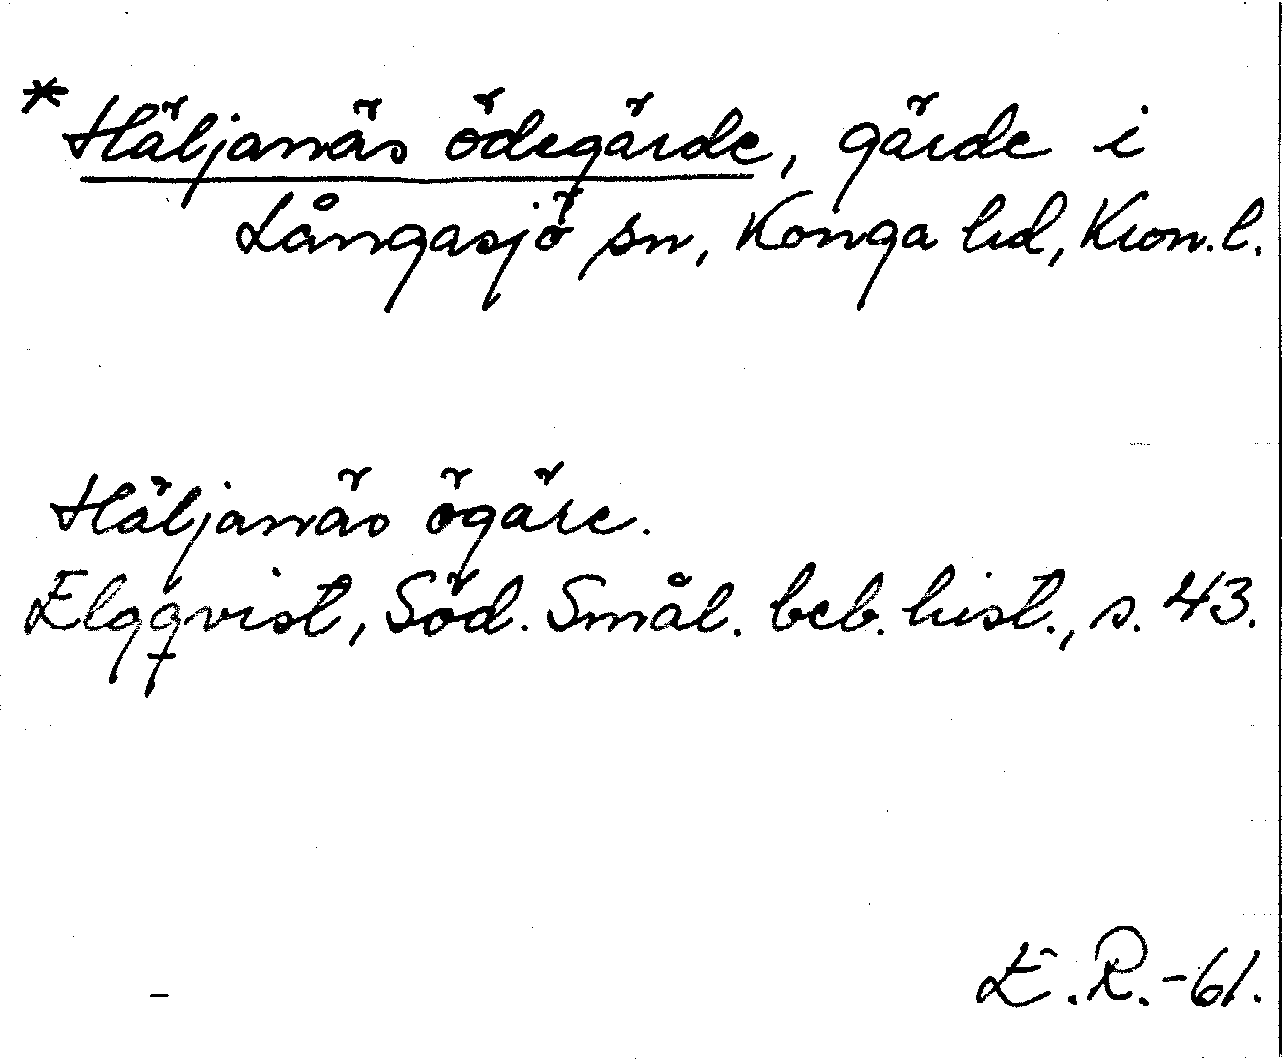 *Häljanäs ödegärde, gärde i
Långasjö sn, Konga hd, Kron.l.
Häljanäs ögäre.
Elgqvist, Söd. Smål. beb. hist., s. 43.
E.R.-61.